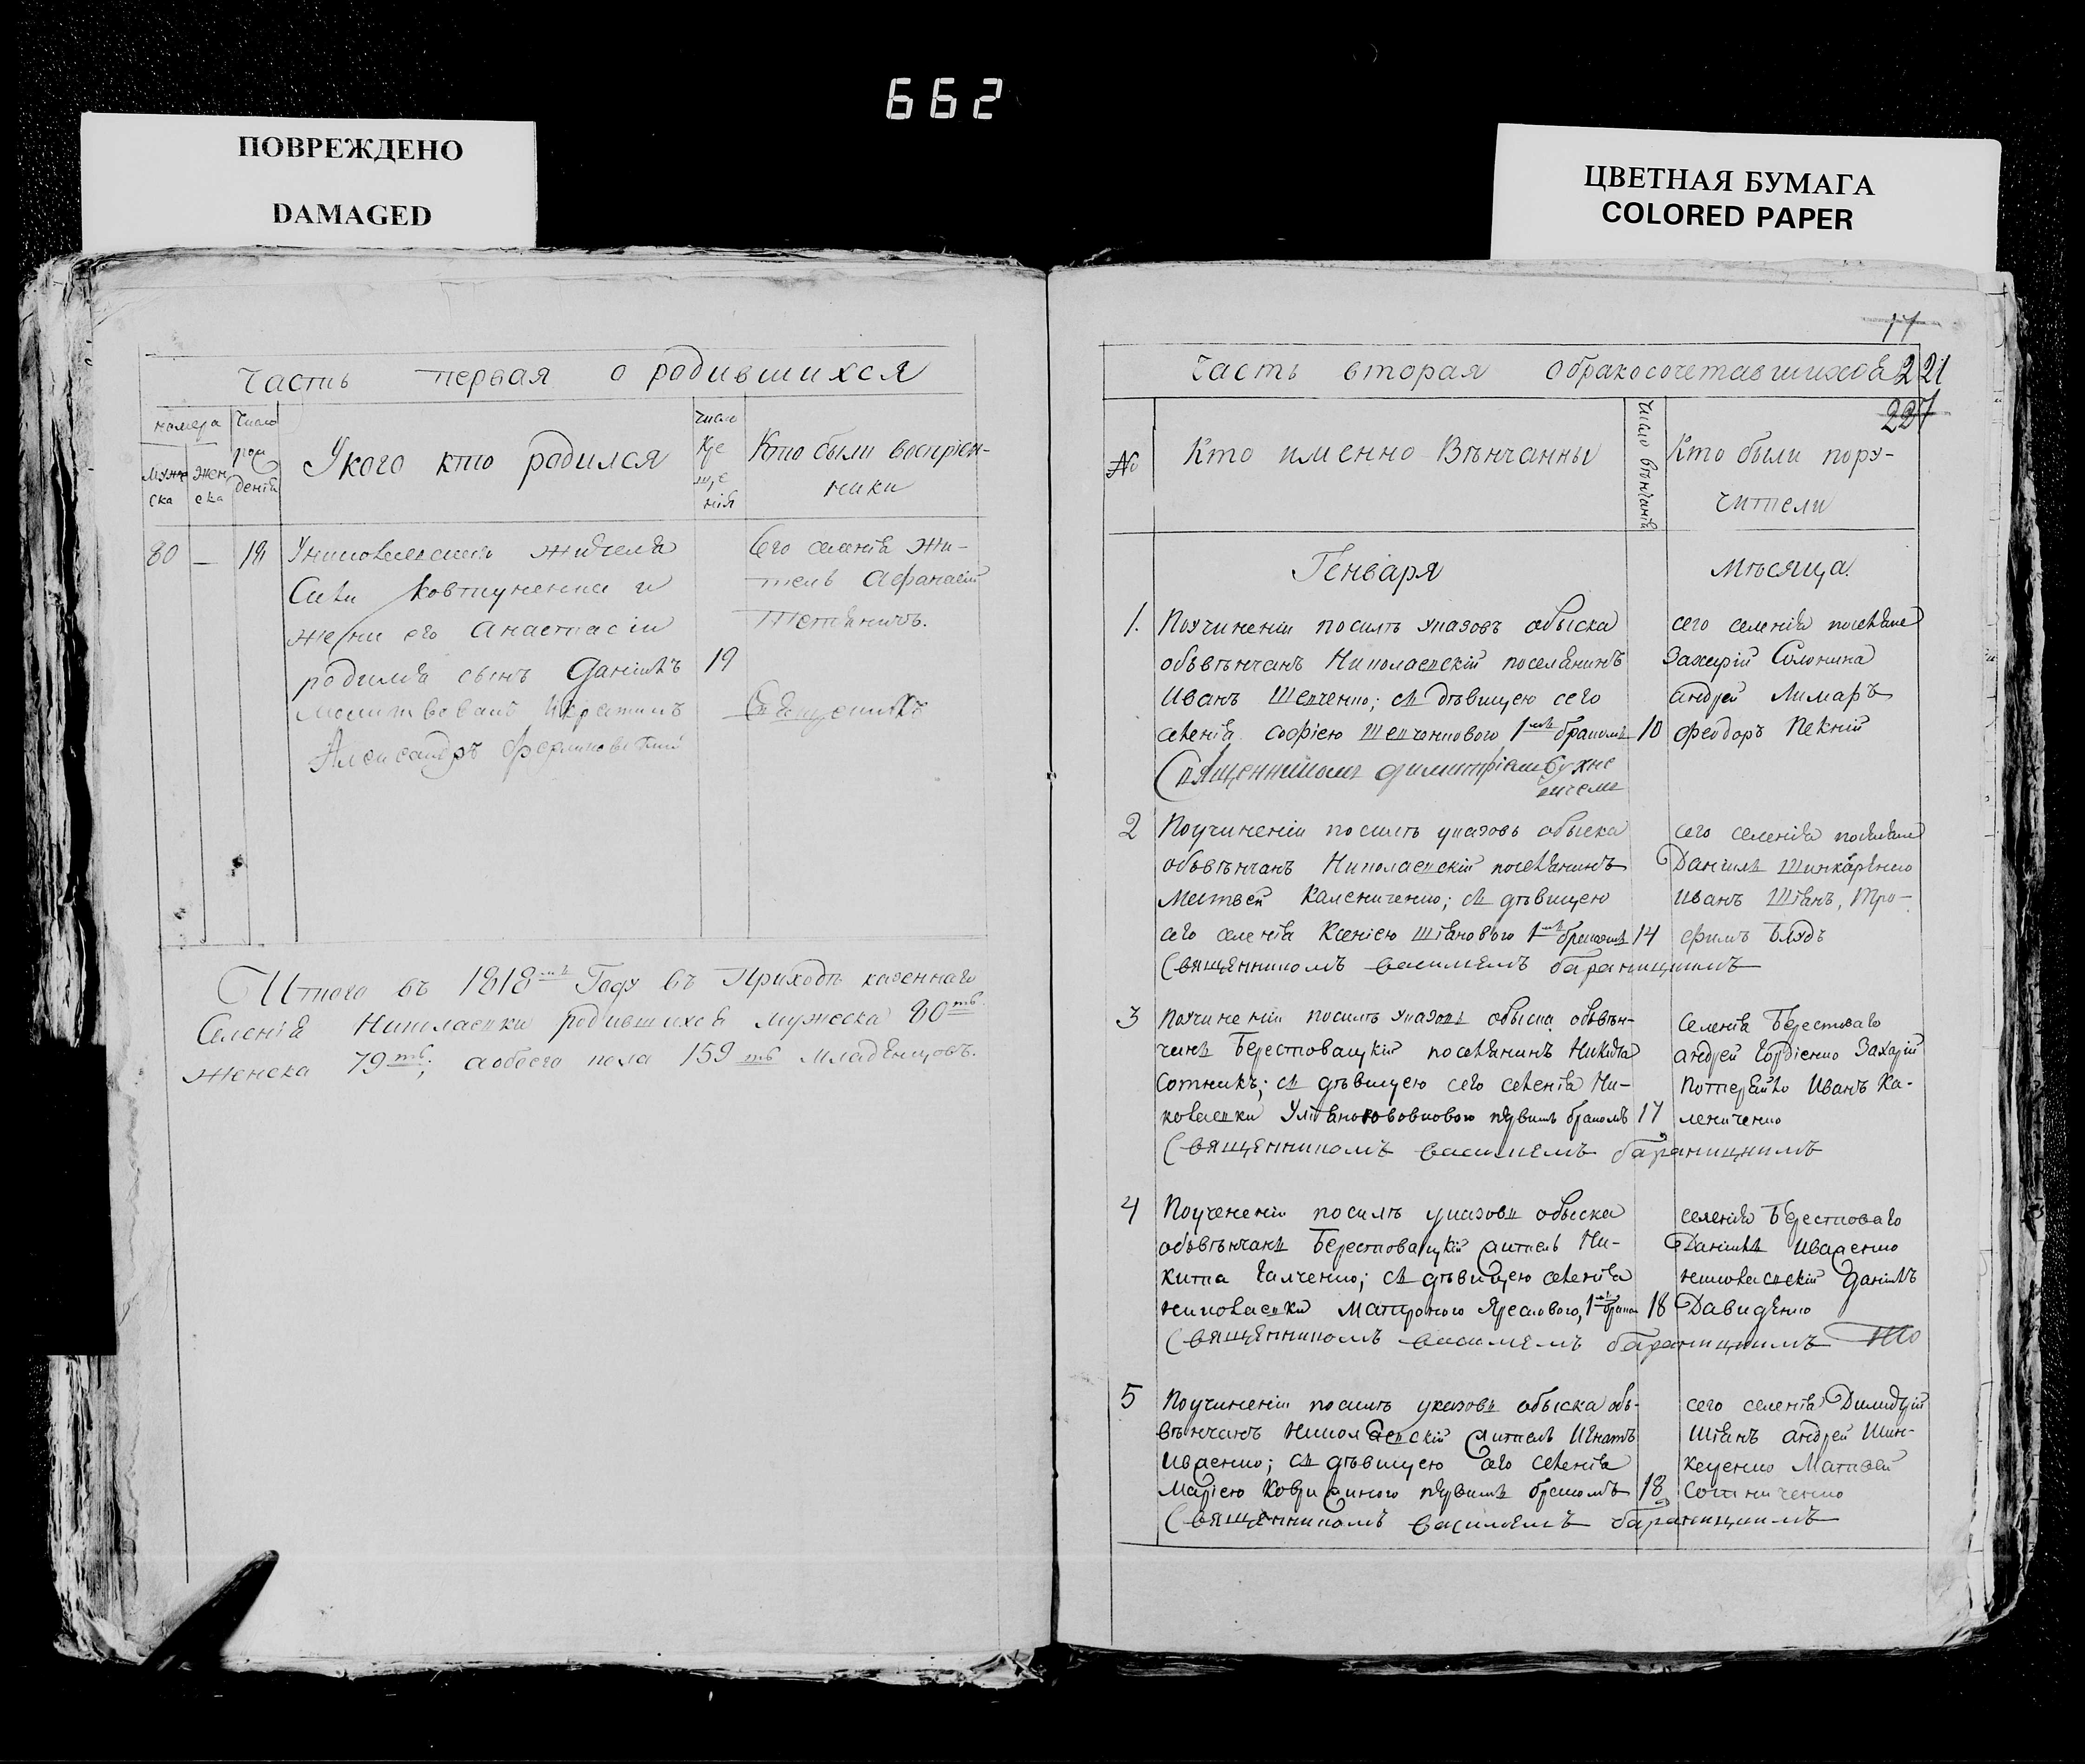 662
ПОВРЕЖДЕНО
DAMAGED
ЦВЕТНАЯ БУМАГА
COLORED PAPER
Часть первая о родившихся
номера
Число
рож
деній
Муже
ска
Жен
ска
У кого кто родился
Число
Кре
ще
нія
Кто были воспріем-
ники
80 — 18 жителя
Савы Ковтуненка и
жени его Анастасіи
родился сынъ Даніилъ 19
молитвовалъ Икрестилъ
Александръ
Его селенія жи-
тель Афанасій
Итого въ 1818мъ Году въ Приходѣ казеннаго
Селенія Николаевки родившихся мужеска 80ть
Женска 79ть; аобоего пола 159ть младѣнцовъ.
17
Часть вторая обракосочетавшихся 221
227
№
Кто именно Вѣнчанны
Число вѣнчанія
Кто были пору-
чители
Генваря Мѣсяца.
1. Поучиненіи посилѣ указовъ обыска
объвѣнчанъ Николаевскій поселянинъ
Иванъ Шевченко; съ дѣвицею сего
селенія софіею 1мъ бракомъ 10
Священникомъ Димитріемъ
сего селенія поселяне
Захарій Солонина
андрей Лимаръ
феодоръ
2 Поучиненіи посилѣ указовъ обыска
объвѣнчанъ Николаевскій поселянинъ
Матвей Калениченко; съ дѣвицею
сего селенія Ксеніею Штановою 1мъ бракомъ 14
Священникомъ василіемъ бараницкимъ
сего селенія поселяне
Даніилъ Шинкарѣнко
Иванъ Штанъ, Тро-
фимъ
3 Поучиненіи посилѣ указовъ обыска объвѣн-
чанъ Берестовацкій поселянинъ Никита
Сотникъ; съ дѣвицею сего селенія Ни-
колаевки первимъ бракомъ 17
Священникомъ василіемъ бараницкимъ
Селенія Берестоваго
андрей Гордіенко Захарій
Иванъ Ка-
лениченко
4 Поучененіи посилѣ указовъ обыска
объвѣнчанъ Берестовацкій житель Ни-
кита Галченко; съ дѣвицею селенія
николаевки Матроною 1мъ брако 18
Священникомъ василіемъ бараницкимъ
селенія Берестоваго
Даніилъ
николаевскій Даніилъ
Давидѣнко
5 Поучиненіи посилѣ указовъ обыска объ-
вѣнчанъ николаевскій житель Игнатъ
съ дѣвицею сего селенія
Маріею первимъ бракомъ 18
Священникомъ василіемъ бараницкимъ
сего селенія
Штанъ андрей Шин-
Матвѣй
Сотниченко